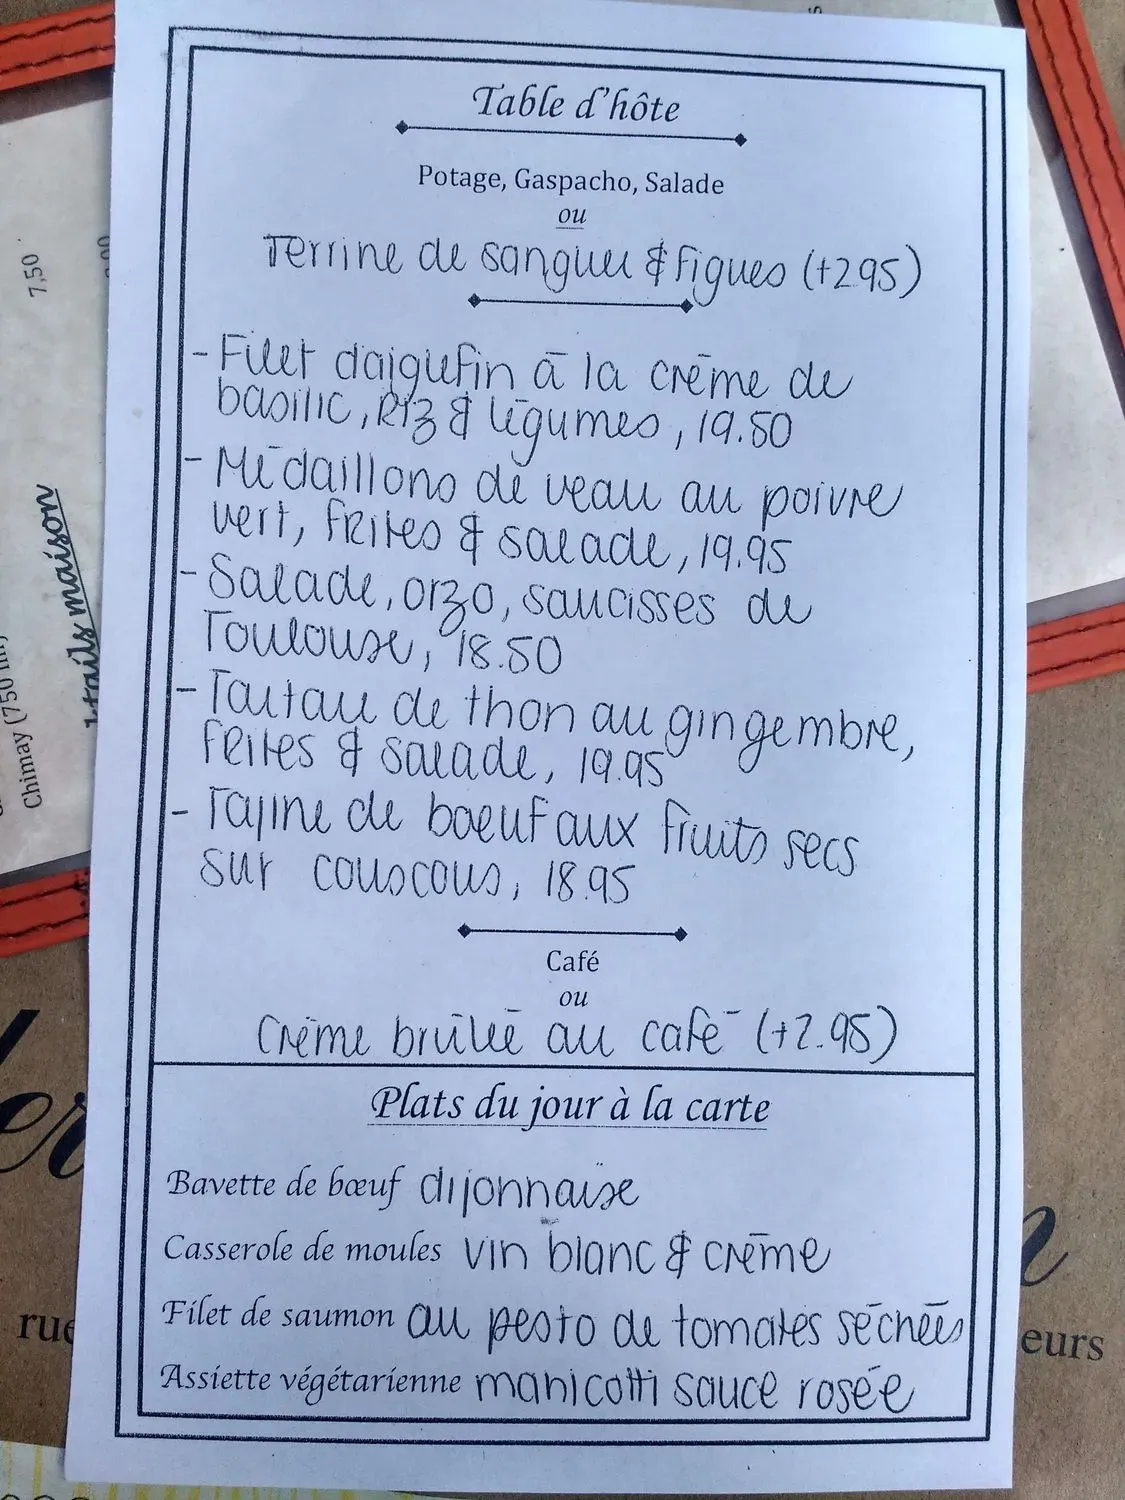 Table d'hôte
Potage, Gaspacho, Salade
ou
Terrine de sanglier & figues (+2.95)
- Filet d'aiglefin à la crème de
basilic, riz & légumes, 19.50
- Médaillons de veau au poivre
vert, frites & salade, 19.95
- Salade, orzo, saucisses de
Toulouse, 18.50
- Tartare de thon au gingembre,
frites & salade, 19.95
- Tajine de boeuf aux fruits secs
sur couscous, 18.95
Café
ou
Crème brûlée au café (+2.95)
Plats du jour à la carte
Bavette de bœuf dijonnaise
Casserole de moules vin blanc & crème
Filet de saumon au pesto de tomates séchées
Assiette végétarienne manicotti sauce rosée
7,50
Chimay (750 ml)
ktails maison
er
rue
eurs